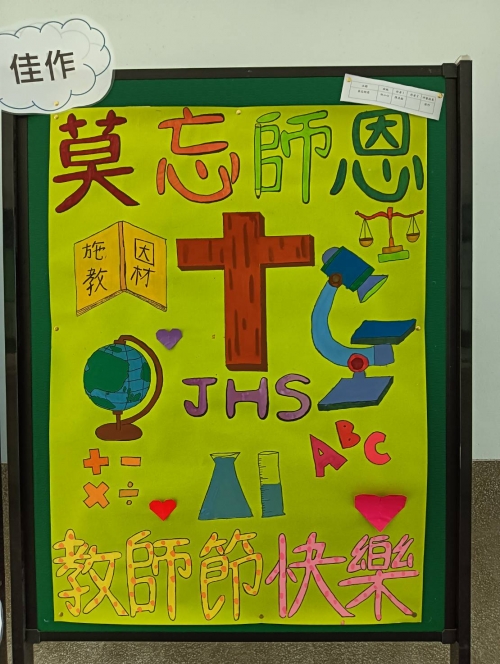 佳作
莫忘師恩
因材
施教
JHS
ABC
+ −
× ÷
教師節快樂